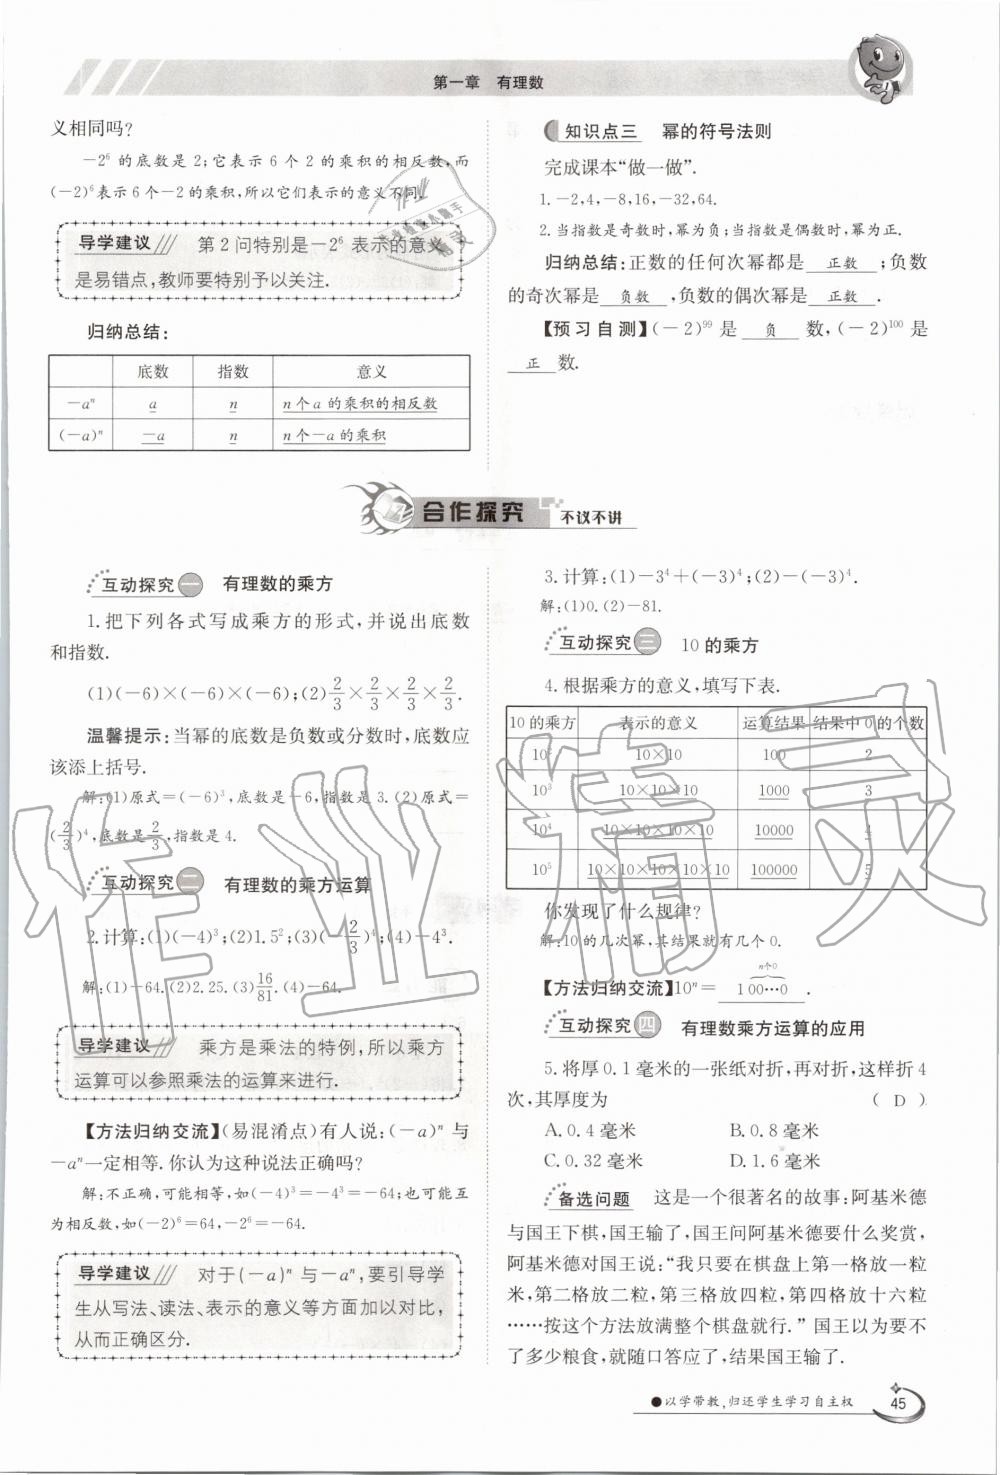 第一章 有理数
义相同吗?
-2⁶ 的底数是 2;它表示 6 个 2 的乘积的相反数,而
(-2)⁶表示 6 个-2 的乘积,所以它们表示的意义不同.
导学建议 第 2 问特别是-2⁶ 表示的意义
是易错点,教师要特别予以关注.
归纳总结:
底数 指数 意义
-aⁿ a n n个a的乘积的相反数
(-a)ⁿ -a n n个-a的乘积
知识点三 幂的符号法则
完成课本“做一做”.
1. -2,4,-8,16,-32,64.
2. 当指数是奇数时,幂为负;当指数是偶数时,幂为正.
归纳总结:正数的任何次幂都是 正数 ;负数
的奇次幂是 负数 ,负数的偶次幂是 正数 .
【预习自测】(-2)⁹⁹ 是 负 数,(-2)¹⁰⁰ 是
正 数.
合作探究 不议不讲
互动探究一 有理数的乘方
1.把下列各式写成乘方的形式,并说出底数
和指数.
(1)(-6)×(-6)×(-6);(2)2/3×2/3×2/3×2/3.
温馨提示:当幂的底数是负数或分数时,底数应
该添上括号.
解:(1)原式=(-6)³,底数是-6,指数是 3.(2)原式=
(2/3)⁴,底数是2/3,指数是 4.
互动探究二 有理数的乘方运算
2.计算:(1)(-4)³;(2)1.5²;(3)(-2/3)⁴;(4)-4³.
解:(1)-64.(2)2.25.(3)16/81.(4)-64.
导学建议 乘方是乘法的特例,所以乘方
运算可以参照乘法的运算来进行.
【方法归纳交流】(易混淆点)有人说:(-a)ⁿ 与
-aⁿ一定相等.你认为这种说法正确吗?
解:不正确,可能相等,如(-4)³=-4³=-64;也可能互
为相反数,如(-2)⁶=64,-2⁶=-64.
导学建议 对于(-a)ⁿ 与-aⁿ,要引导学
生从写法、读法、表示的意义等方面加以对比,
从而正确区分.
3.计算:(1)-3⁴+(-3)⁴;(2)-(-3)⁴.
解:(1)0.(2)-81.
互动探究三 10 的乘方
4.根据乘方的意义,填写下表.
10 的乘方 表示的意义 运算结果 结果中 0 的个数
10² 10×10 100 2
10³ 10×10×10 1000 3
10⁴ 10×10×10×10 10000 4
10⁵ 10×10×10×10×10 100000 5
你发现了什么规律?
解:10的几次幂,其结果就有几个 0.
n个0
【方法归纳交流】10ⁿ= 1 00…0 .
互动探究四 有理数乘方运算的应用
5.将厚 0.1 毫米的一张纸对折,再对折,这样折 4
次,其厚度为 ( D )
A.0.4 毫米 B.0.8 毫米
C.0.32 毫米 D.1.6 毫米
备选问题 这是一个很著名的故事:阿基米德
与国王下棋,国王输了,国王问阿基米德要什么奖赏,
阿基米德对国王说:“我只要在棋盘上第一格放一粒
米,第二格放二粒,第三格放四粒,第四格放十六粒
……按这个方法放满整个棋盘就行.”国王以为要不
了多少粮食,就随口答应了,结果国王输了.
●以学带教,归还学生学习自主权 45
作业精灵